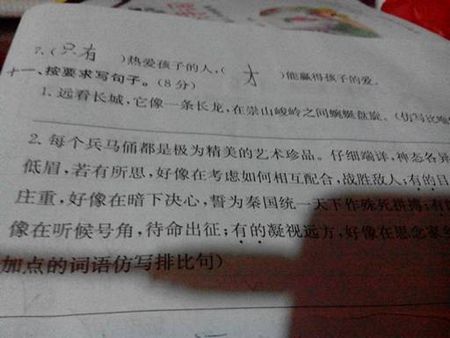 7.(只有)热爱孩子的人,(才)能赢得孩子的爱。
十一、按要求写句子。(8分)
1. 远看长城,它像一条长龙,在崇山峻岭之间蜿蜒盘旋。(仿写比喻
2. 每个兵马俑都是极为精美的艺术珍品。仔细端详,神态各异
低眉,若有所思,好像在考虑如何相互配合,战胜敌人;有的目
庄重,好像在暗下决心,誓为秦国统一天下作殊死拼搏;有
像在听候号角,待命出征;有的凝视远方,好像在思念家
加点的词语仿写排比句)